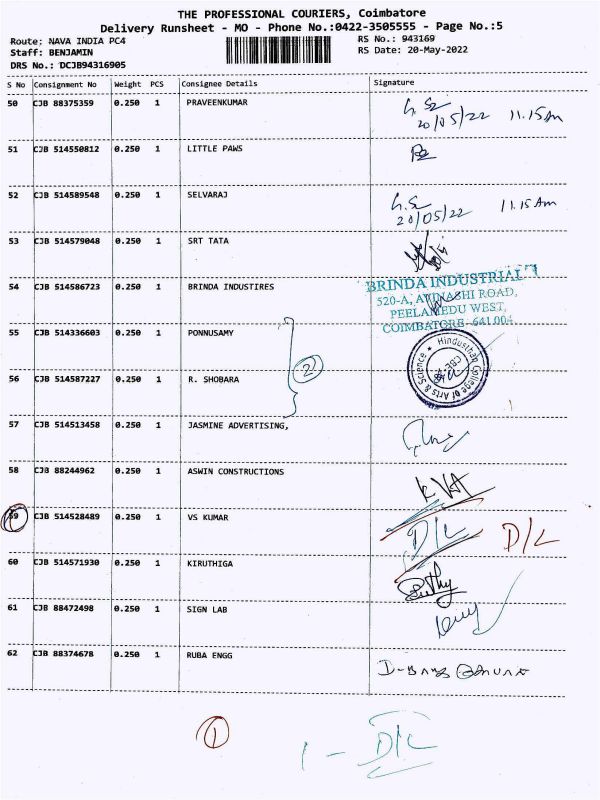 THE PROFESSIONAL COURIERS, Coimbatore
Delivery Runsheet - MO - Phone No.:0422-3505555 - Page No.:5
Route: NAVA INDIA PC4 RS No.: 943169
Staff: BENJAMIN RS Date: 20-May-2022
DRS No.: DCJB94316905
S No Consignment No Weight PCS Consignee Details Signature
50 CJB 88375359 0.250 1 PRAVEENKUMAR
20/05/22 11.15Am
51 CJB 514550812 0.250 1 LITTLE PAWS
52 CJB 514589548 0.250 1 SELVARAJ
20/05/22 11.15Am
53 CJB 514579048 0.250 1 SRT TATA
54 CJB 514586723 0.250 1 BRINDA INDUSTIRES
BRINDA INDUSTRIAL
520-A, AVINASHI ROAD,
PEELAMEDU WEST,
COIMBATORE - 641 004
55 CJB 514336603 0.250 1 PONNUSAMY
2
Hindusthan College of Arts & Science
CBE
56 CJB 514587227 0.250 1 R. SHOBARA
57 CJB 514513458 0.250 1 JASMINE ADVERTISING,
58 CJB 88244962 0.250 1 ASWIN CONSTRUCTIONS
59 CJB 514528489 0.250 1 VS KUMAR D/L D/L
60 CJB 514571930 0.250 1 KIRUTHIGA
61 CJB 88472498 0.250 1 SIGN LAB
62 CJB 88374678 0.250 1 RUBA ENGG
1
1 - D/L